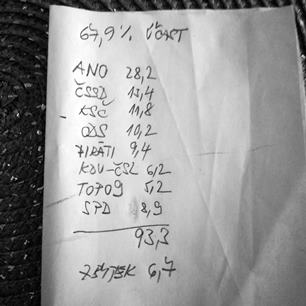 67,9 % ÚČAST
ANO 28,2
ČSSD 13,4
KSČ 11,8
ODS 10,2
PIRÁTI 9,4
KDU-ČSL 6,2
TOP09 5,2
SPD 8,9
93,3
ZBYTEK 6,7